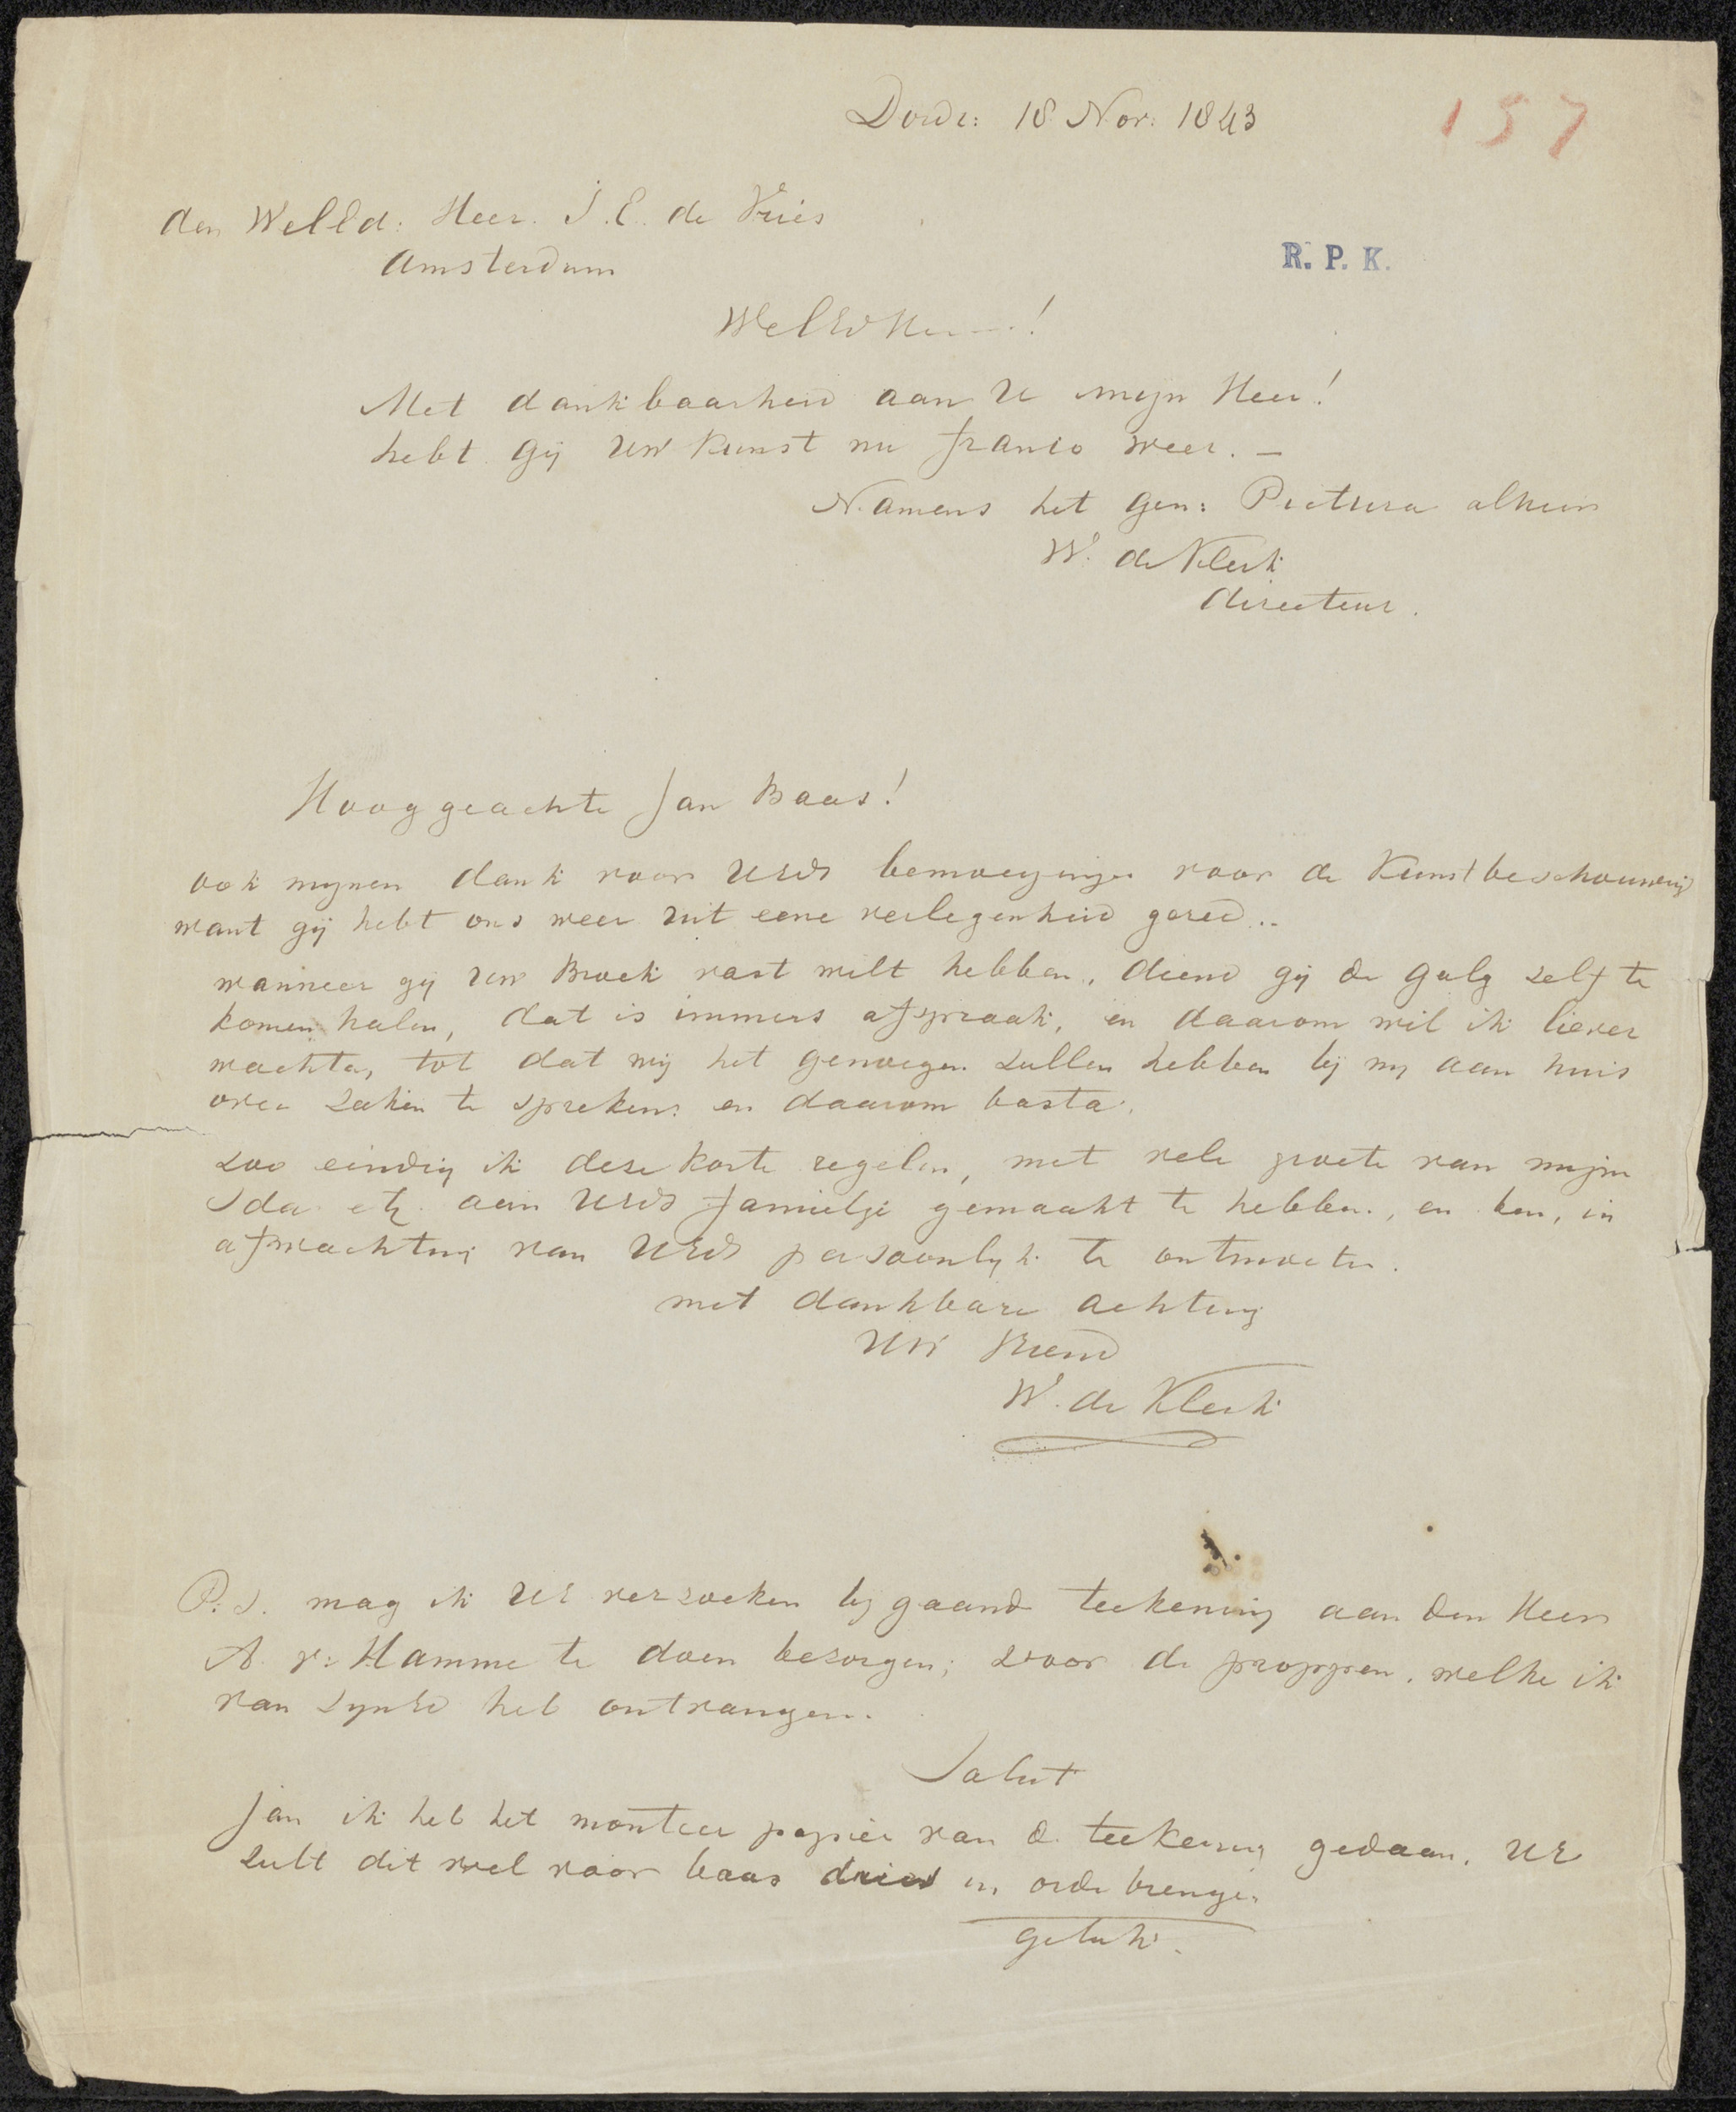 Dordr: 18 Nov: 1843
157
den WelEd: Heer. J. C. de Vries
Amsterdam
R. P. K.
WelEdHeer!
Met dankbaarheid aan U mijn Heer!
hebt gij uw kunst nu franco weer. —
Namens het gen: Pictura alhier
W. de Klerk
directeur.
Hooggeachte Jan Baas!
ook mynen dank voor UEds bemoeyingen voor de Kunstbeschouwing
want gij hebt ons weer uit eene verlegenheid gered..
wanneer gij uw Broek vast wilt hebben, diend gij de galg zelf te
komen halen, dat is immers afspraak, en daarom wil ik liever
wachten, tot dat wij het genoegen zullen hebben bij my aan huis
over zaken te spreken: en daarom basta.
zoo eindig ik deze korte regelen, met vele groete van mijn
Ida etz. aan UEds famielje gemaakt te hebben, en ben, in
afwachting van UEds persoonlyk te ontmoeten.
met dankbare achting
Uw Vriend
W. de Klerk
P.S. mag ik UE verzoeken bygaand teekening aan den Heer
A v: Hamme te doen bezorgen; voor de proppen, welke ik
van ZynEd heb ontvangen.
Salut
Jan ik heb het monteer papier van de teekening gedaan. UE
zult dit wel voor baas dries in orde brengen
geluk.